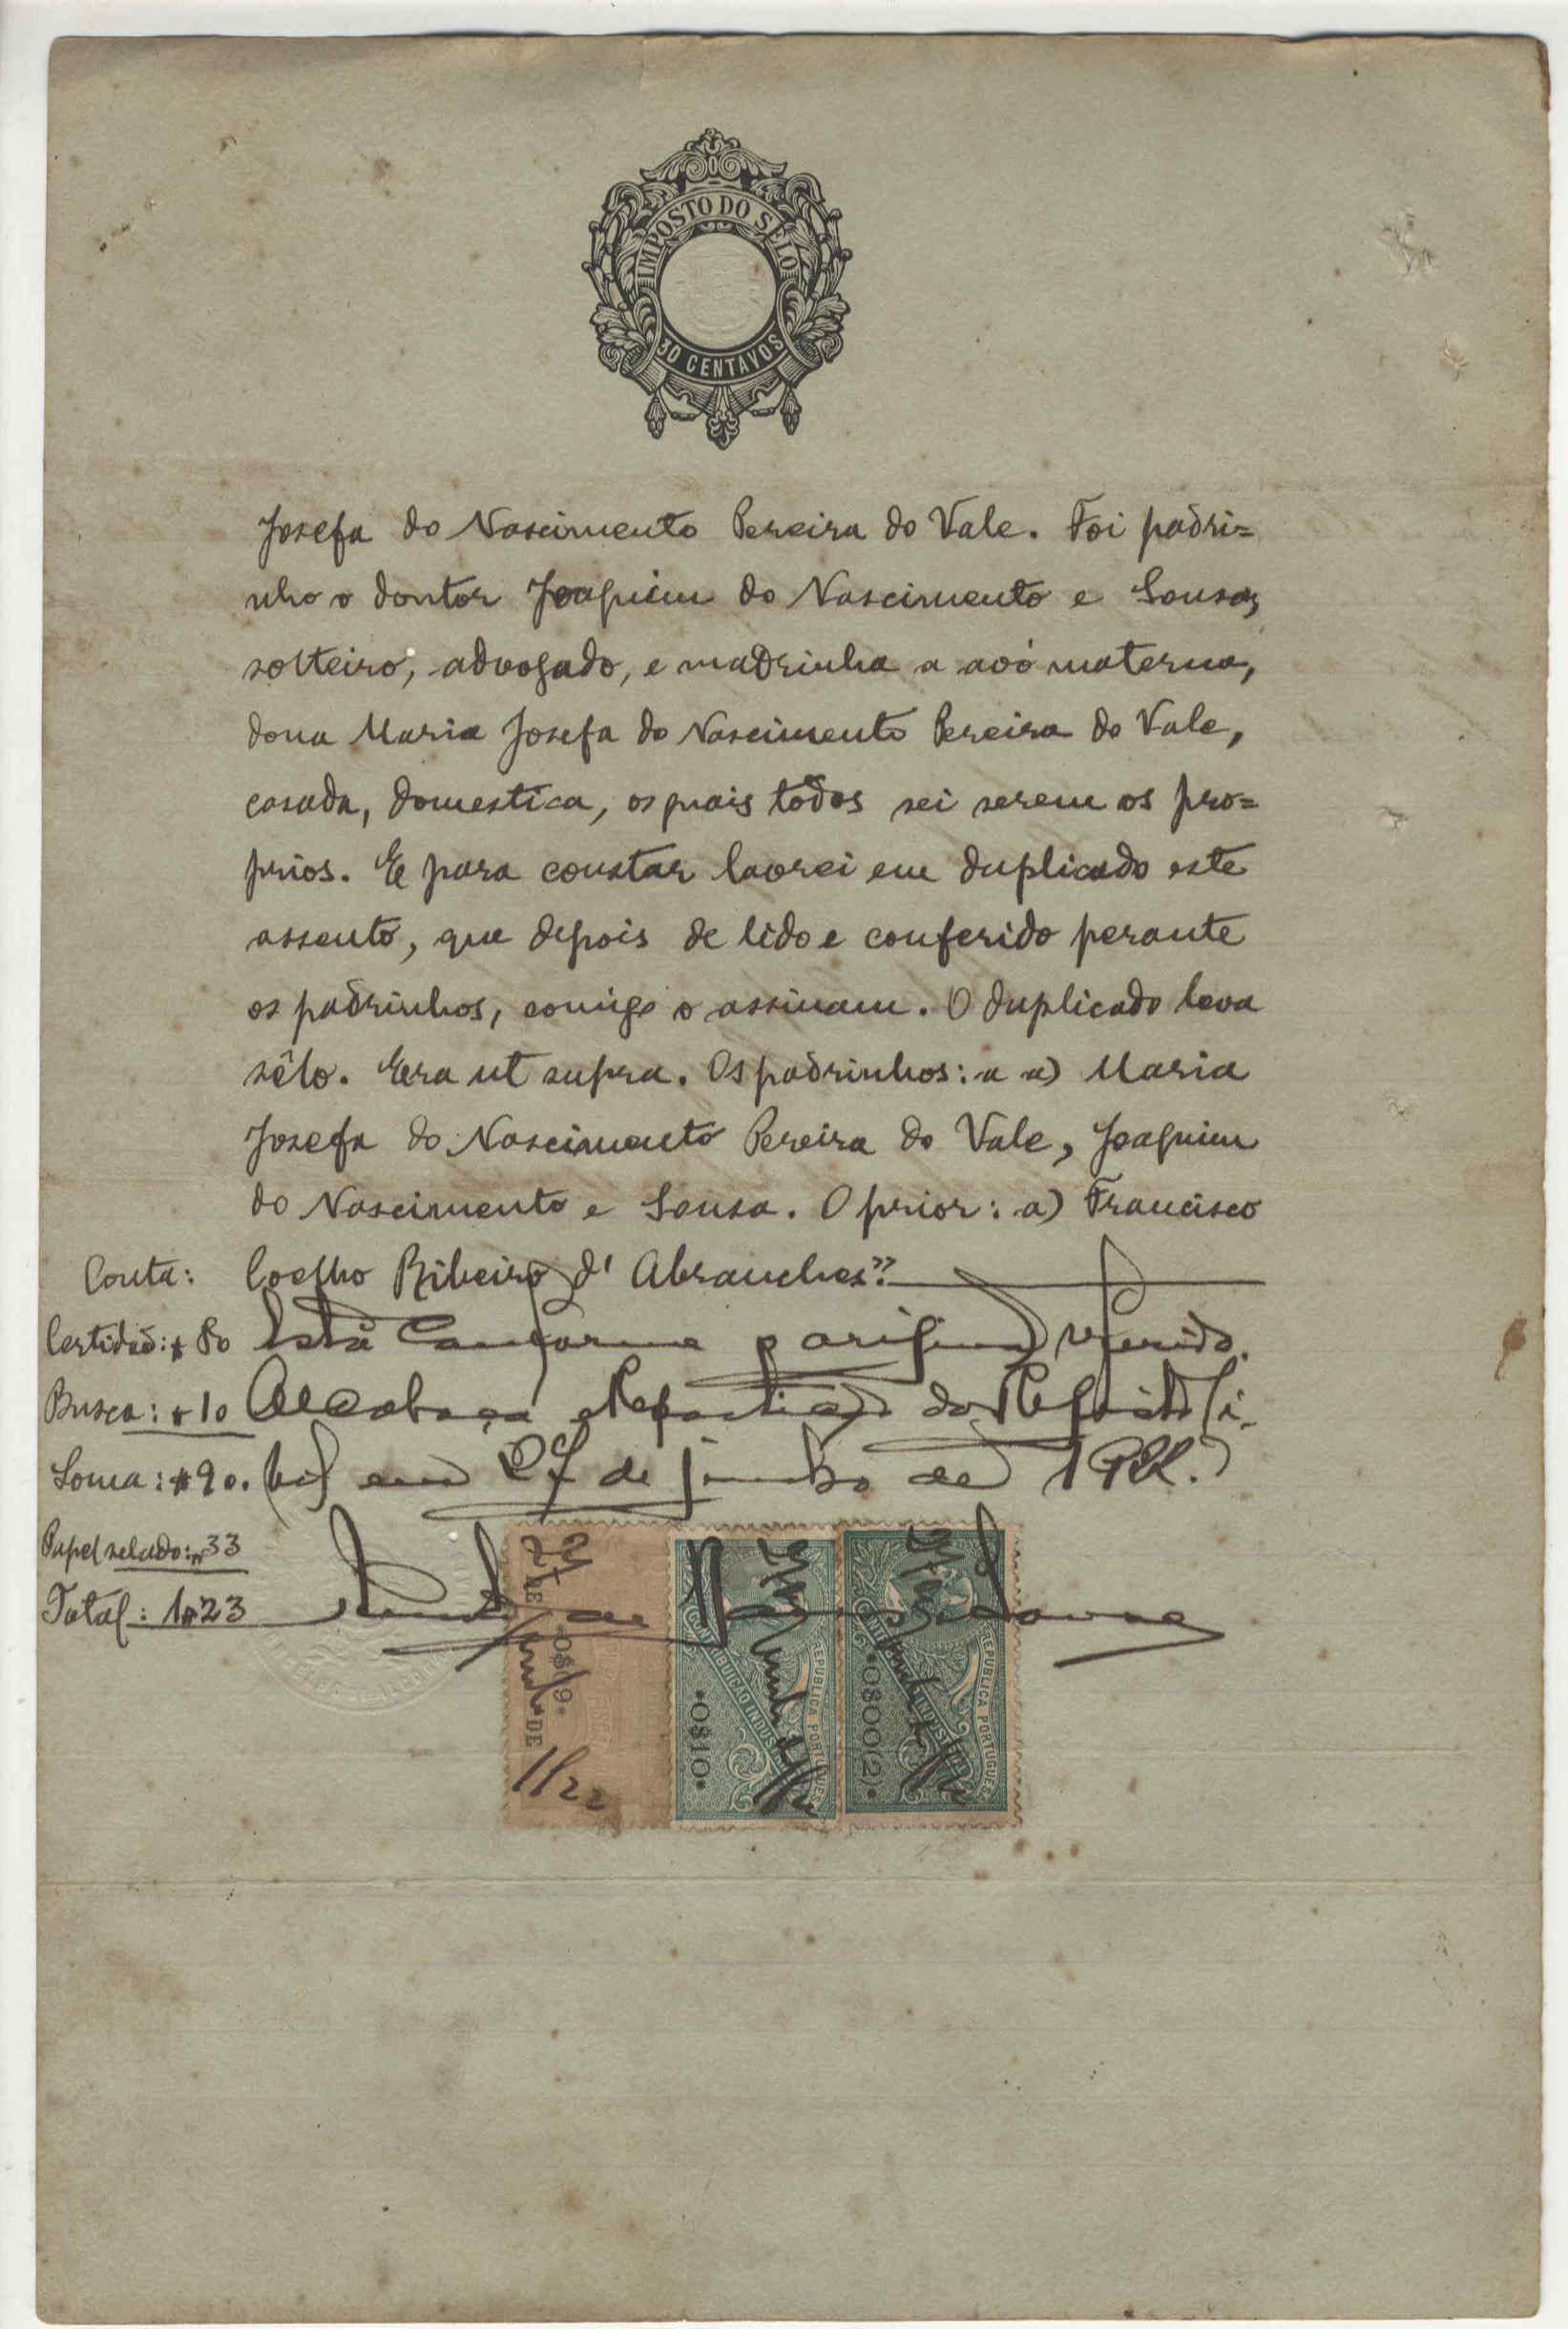 IMPOSTO DO SÊLO
30 CENTAVOS
Josefa do Nascimento Pereira do Vale. Foi padri=
nho o doutor Joaquim do Nascimento e Sousa,
solteiro, advogado, e madrinha a avó materna,
dona Maria Josefa do Nascimento Pereira do Vale,
casada, domestica, os quais todos sei serem os pro=
prios. E para constar lavrei em duplicado este
assento, que depois de lido e conferido perante
os padrinhos, comigo o assinam. O duplicado leva
sêlo. Era ut supra. Os padrinhos: a a) Maria
Josefa do Nascimento Pereira do Vale, Joaquim
do Nascimento e Sousa. O prior: a) Francisco
Conta: Coelho Ribeiro d' Abranches".
Certidão: $80 Está conforme o original referido.
Busca: $10 Alcobaça e Repartição do Registo Ci-
Soma: $90. vil em 27 de junho de 1922.
Papel selado: $33
Total: 1$23
27 DE Junho DE 1922
·0$19·
CONTRIBUIÇÃO INDUSTRIAL
REPUBLICA PORTUGUESA
·0$10·
CONTRIBUIÇÃO INDUSTRIAL
REPUBLICA PORTUGUESA
·0$00(2)·